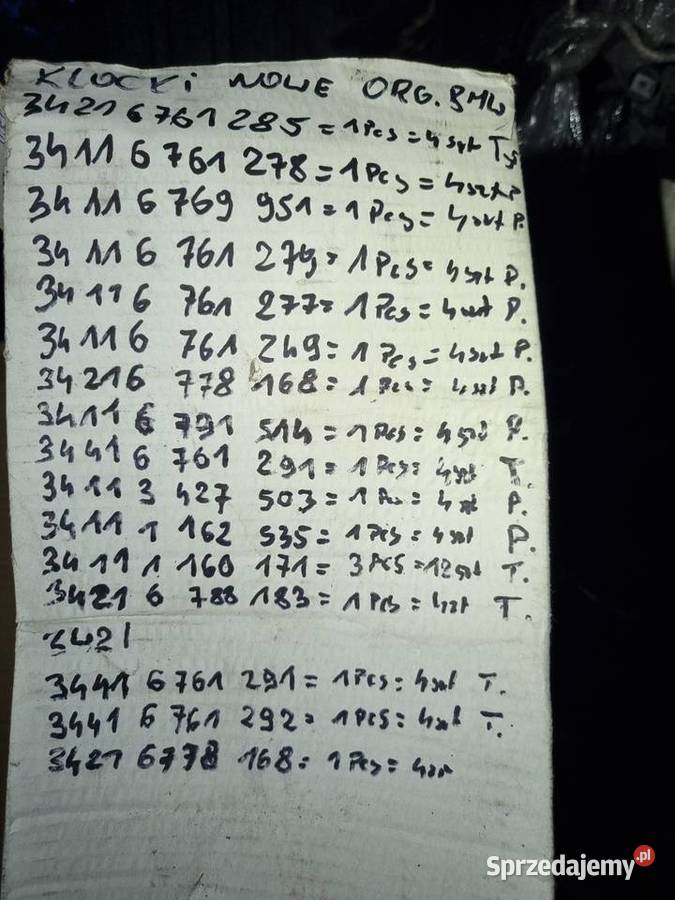 KLOCKi NOWE ORG. BMW
3421 6 761 285 = 1 Pcs = 4 szt Tył
3411 6 761 278 = 1 Pcs = 4 szt P.
34 11 6 769 951 = 1 Pcs = 4 szt P.
34 11 6 761 279 = 1 Pcs = 4 szt P.
34 11 6 761 277 = 1 Pcs = 4 szt P.
34 11 6 761 249 = 1 Pcs = 4 szt P.
34 21 6 778 168 = 1 Pcs = 4 szt P.
3411 6 791 514 = 1 Pcs = 4 szt P.
34 41 6 761 291 = 1 Pcs = 4 szt T.
3411 3 427 503 = 1 Pcs = 4 szt P.
3411 1 162 535 = 1 Pcs = 4 szt P.
3411 1 160 171 = 3 PCS = 12 szt T.
3421 6 788 183 = 1 Pcs = 4 szt T.
3421
3441 6 761 291 = 1 Pcs = 4 szt T.
3441 6 761 292 = 1 Pcs = 4 szt T.
3421 6778 168 = 1 Pcs = 4 szt
Sprzedajemy.pl